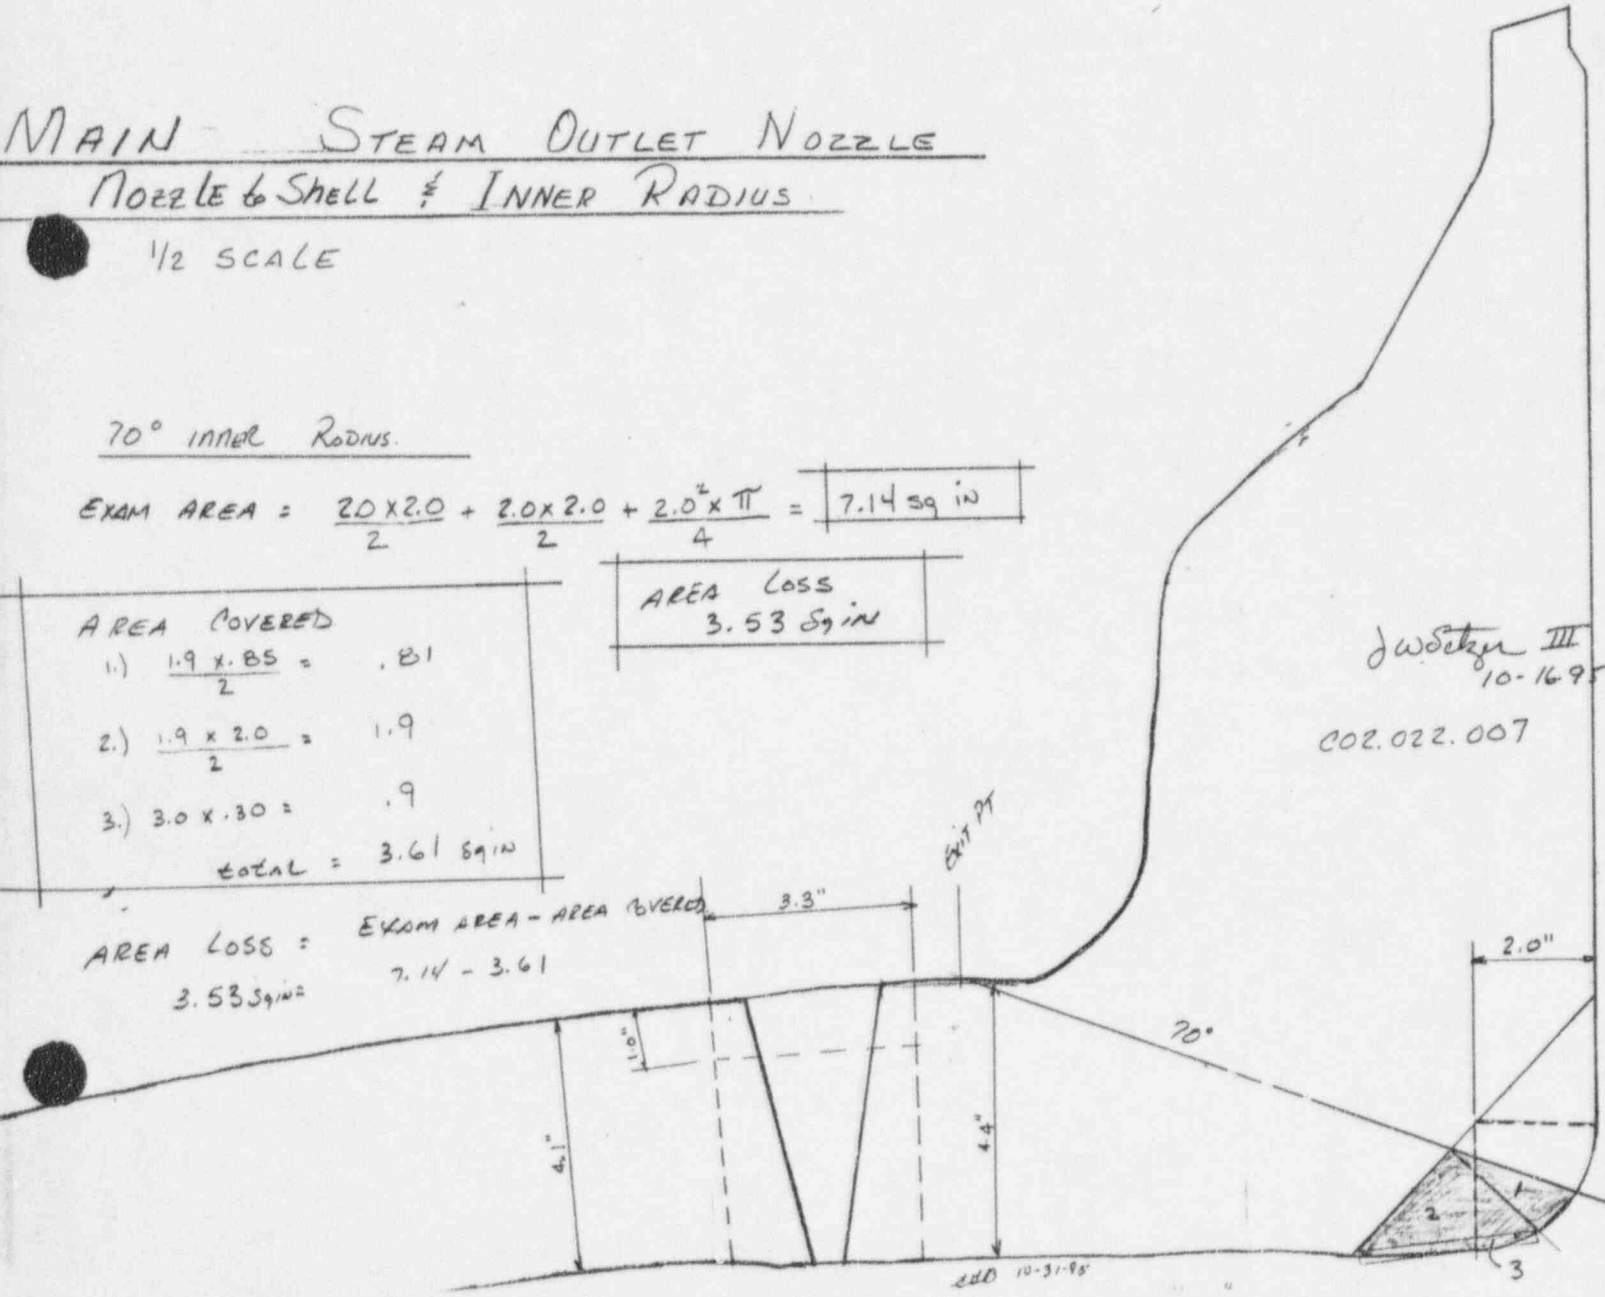 MAIN STEAM OUTLET NOZZLE
NOZZLE to SHELL & INNER RADIUS
1/2 SCALE
70° INNER RADIUS.
EXAM AREA = 2.0 x 2.0 / 2 + 2.0 x 2.0 / 2 + 2.0² x π / 4 = 7.14 sq in
AREA LOSS
3.53 Sq in
AREA COVERED
1.) 1.9 x .85 / 2 = .81
2.) 1.9 x 2.0 / 2 = 1.9
3.) 3.0 x .30 = .9
total = 3.61 Sq in
AREA LOSS = EXAM AREA - AREA COVERED
3.53 Sq in = 7.14 - 3.61
III
10-16-95
C02.022.007
EXIT PT
3.3"
2.0"
1.0"
70°
4.1"
4.4"
1
2
3
10-31-95